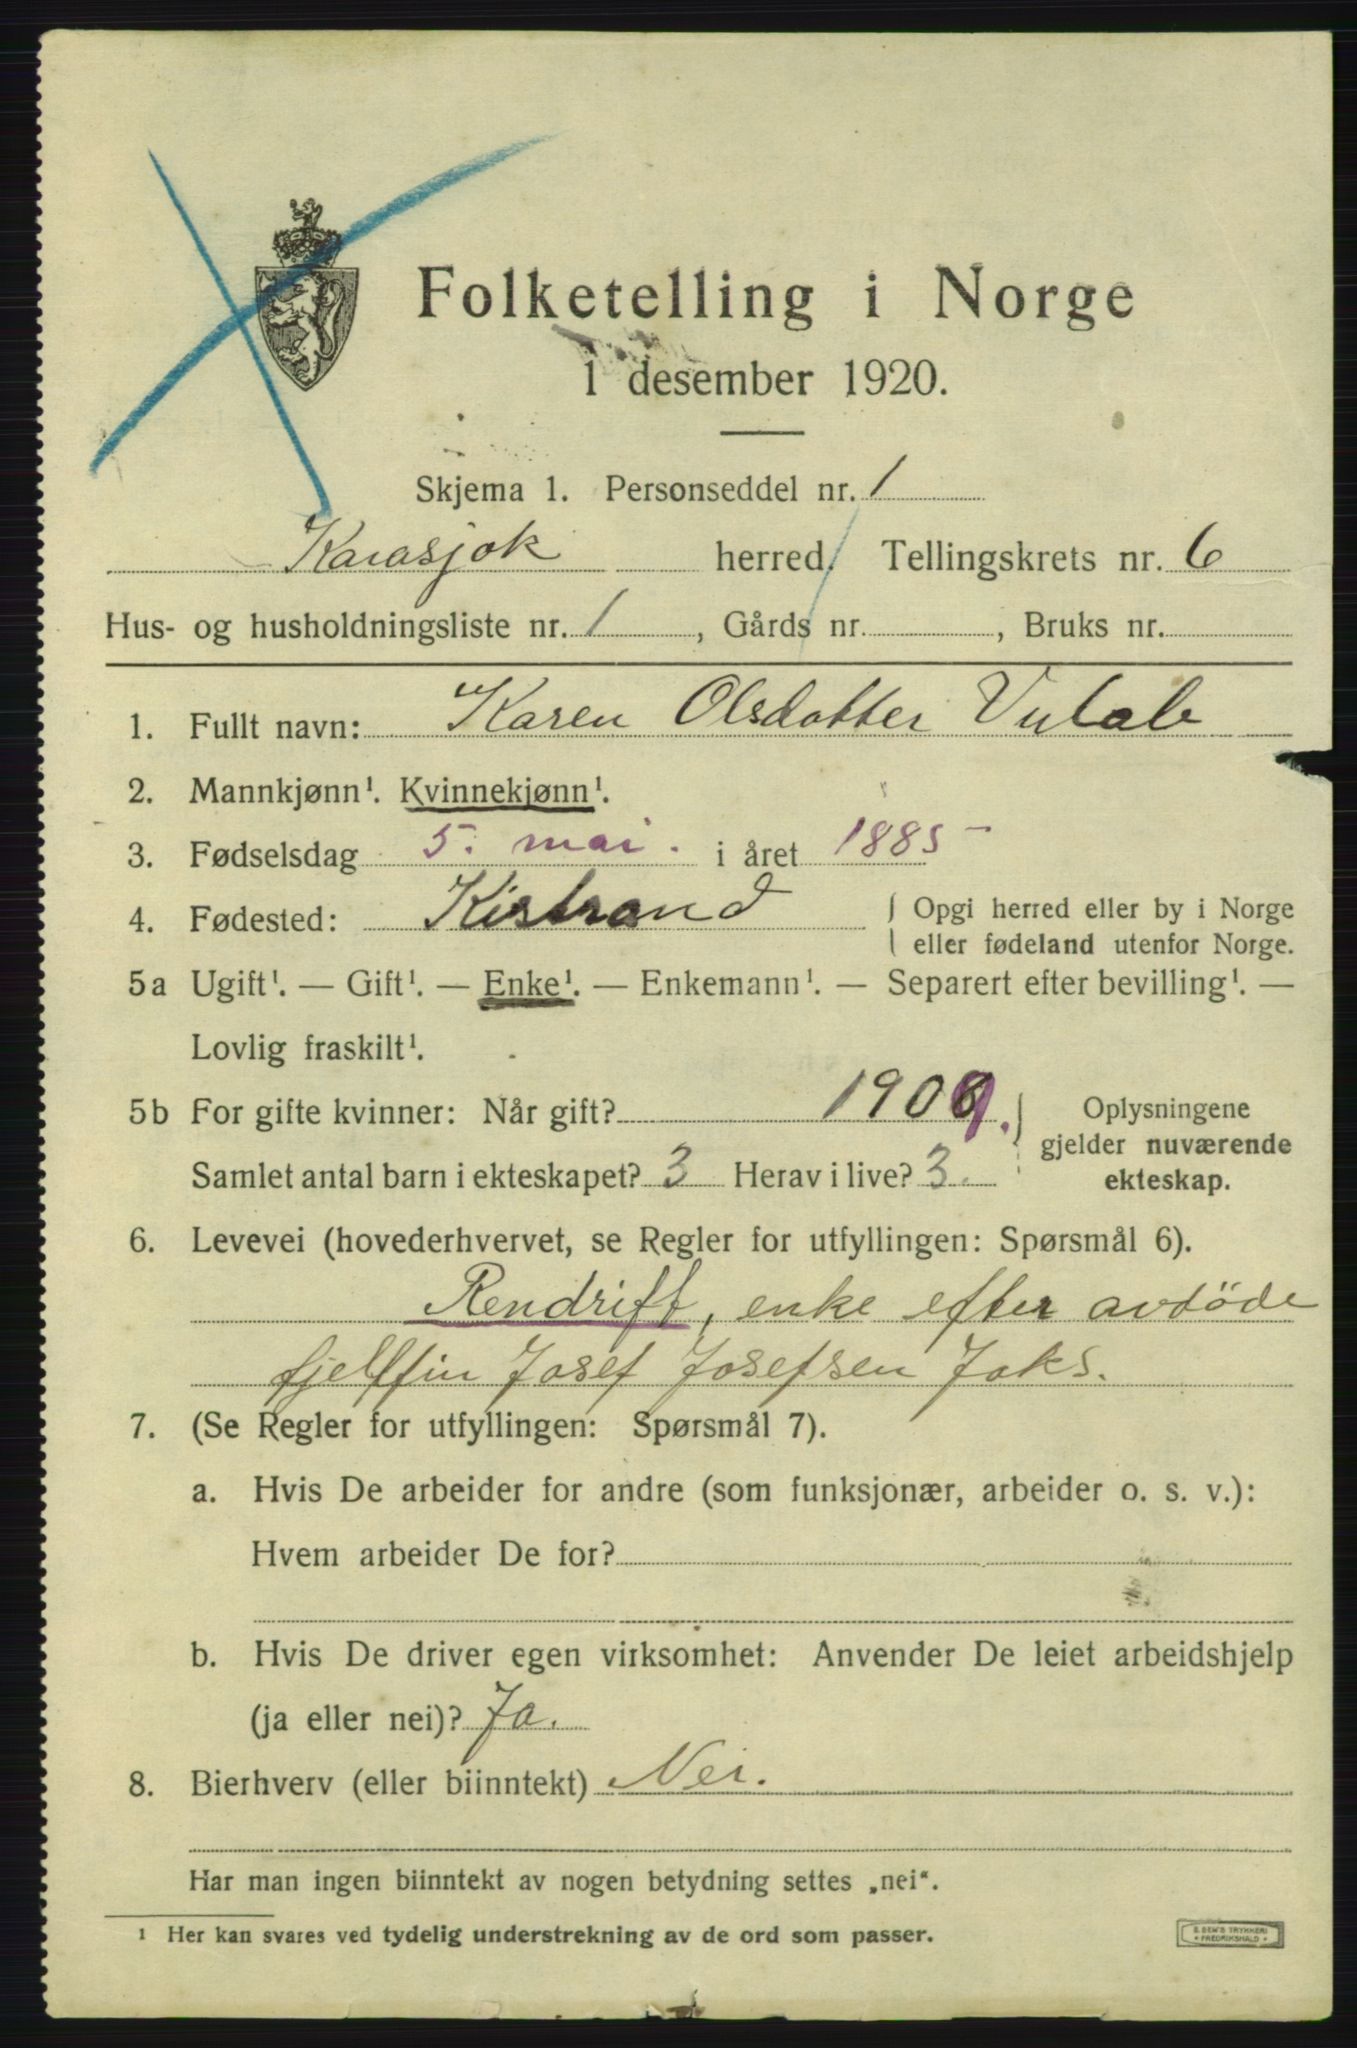 Folketelling i Norge
1 desember 1920.
Skjema 1. Personseddel nr. 1
Karasjok herred. Tellingskrets nr. 6
Hus- og husholdningsliste nr. 1, Gårds nr. , Bruks nr.
1. Fullt navn: Karen Olsdatter
2. Mannkjønn¹. Kvinnekjønn¹.
3. Fødselsdag 5. mai. i året 1885
4. Fødested: Kistrand { Opgi herred eller by i Norge
eller fødeland utenfor Norge.
5a Ugift¹. — Gift¹. — Enke¹. — Enkemann¹. — Separert efter bevilling¹. —
Lovlig fraskilt¹.
5b For gifte kvinner: Når gift? 1909. } Oplysningene
gjelder nuværende
Samlet antal barn i ekteskapet? 3 Herav i live? 3. ekteskap.
6. Levevei (hovederhvervet, se Regler for utfyllingen: Spørsmål 6).
Rendrift, enke efter avdöde
fjellfin Josef Josefsen Joks.
7. (Se Regler for utfyllingen: Spørsmål 7).
a. Hvis De arbeider for andre (som funksjonær, arbeider o. s. v.):
Hvem arbeider De for?
b. Hvis De driver egen virksomhet: Anvender De leiet arbeidshjelp
(ja eller nei)? Ja.
8. Bierhverv (eller biinntekt) Nei.
Har man ingen biinntekt av nogen betydning settes „nei“.
¹ Her kan svares ved tydelig understrekning av de ord som passer.
E. SEM'S TRYKKERI
• FREDRIKSHALD •